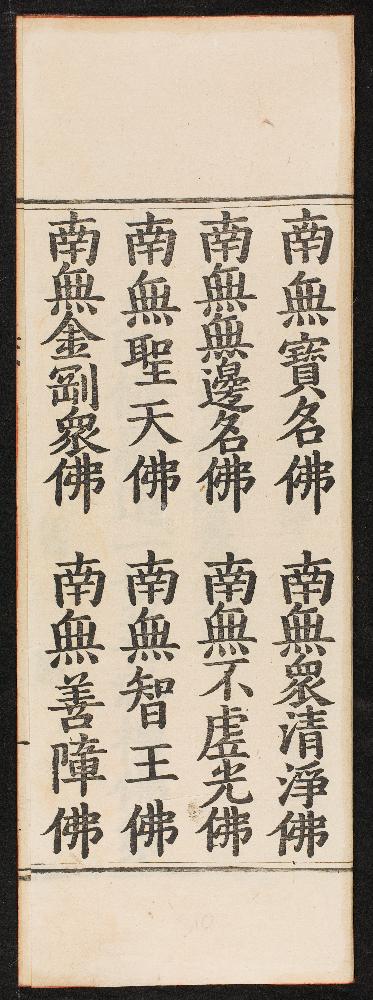 南無寶名佛
南無眾清淨佛
南無無邊名佛
南無不虛光佛
南無聖天佛
南無智王佛
南無金剛眾佛
南無善障佛